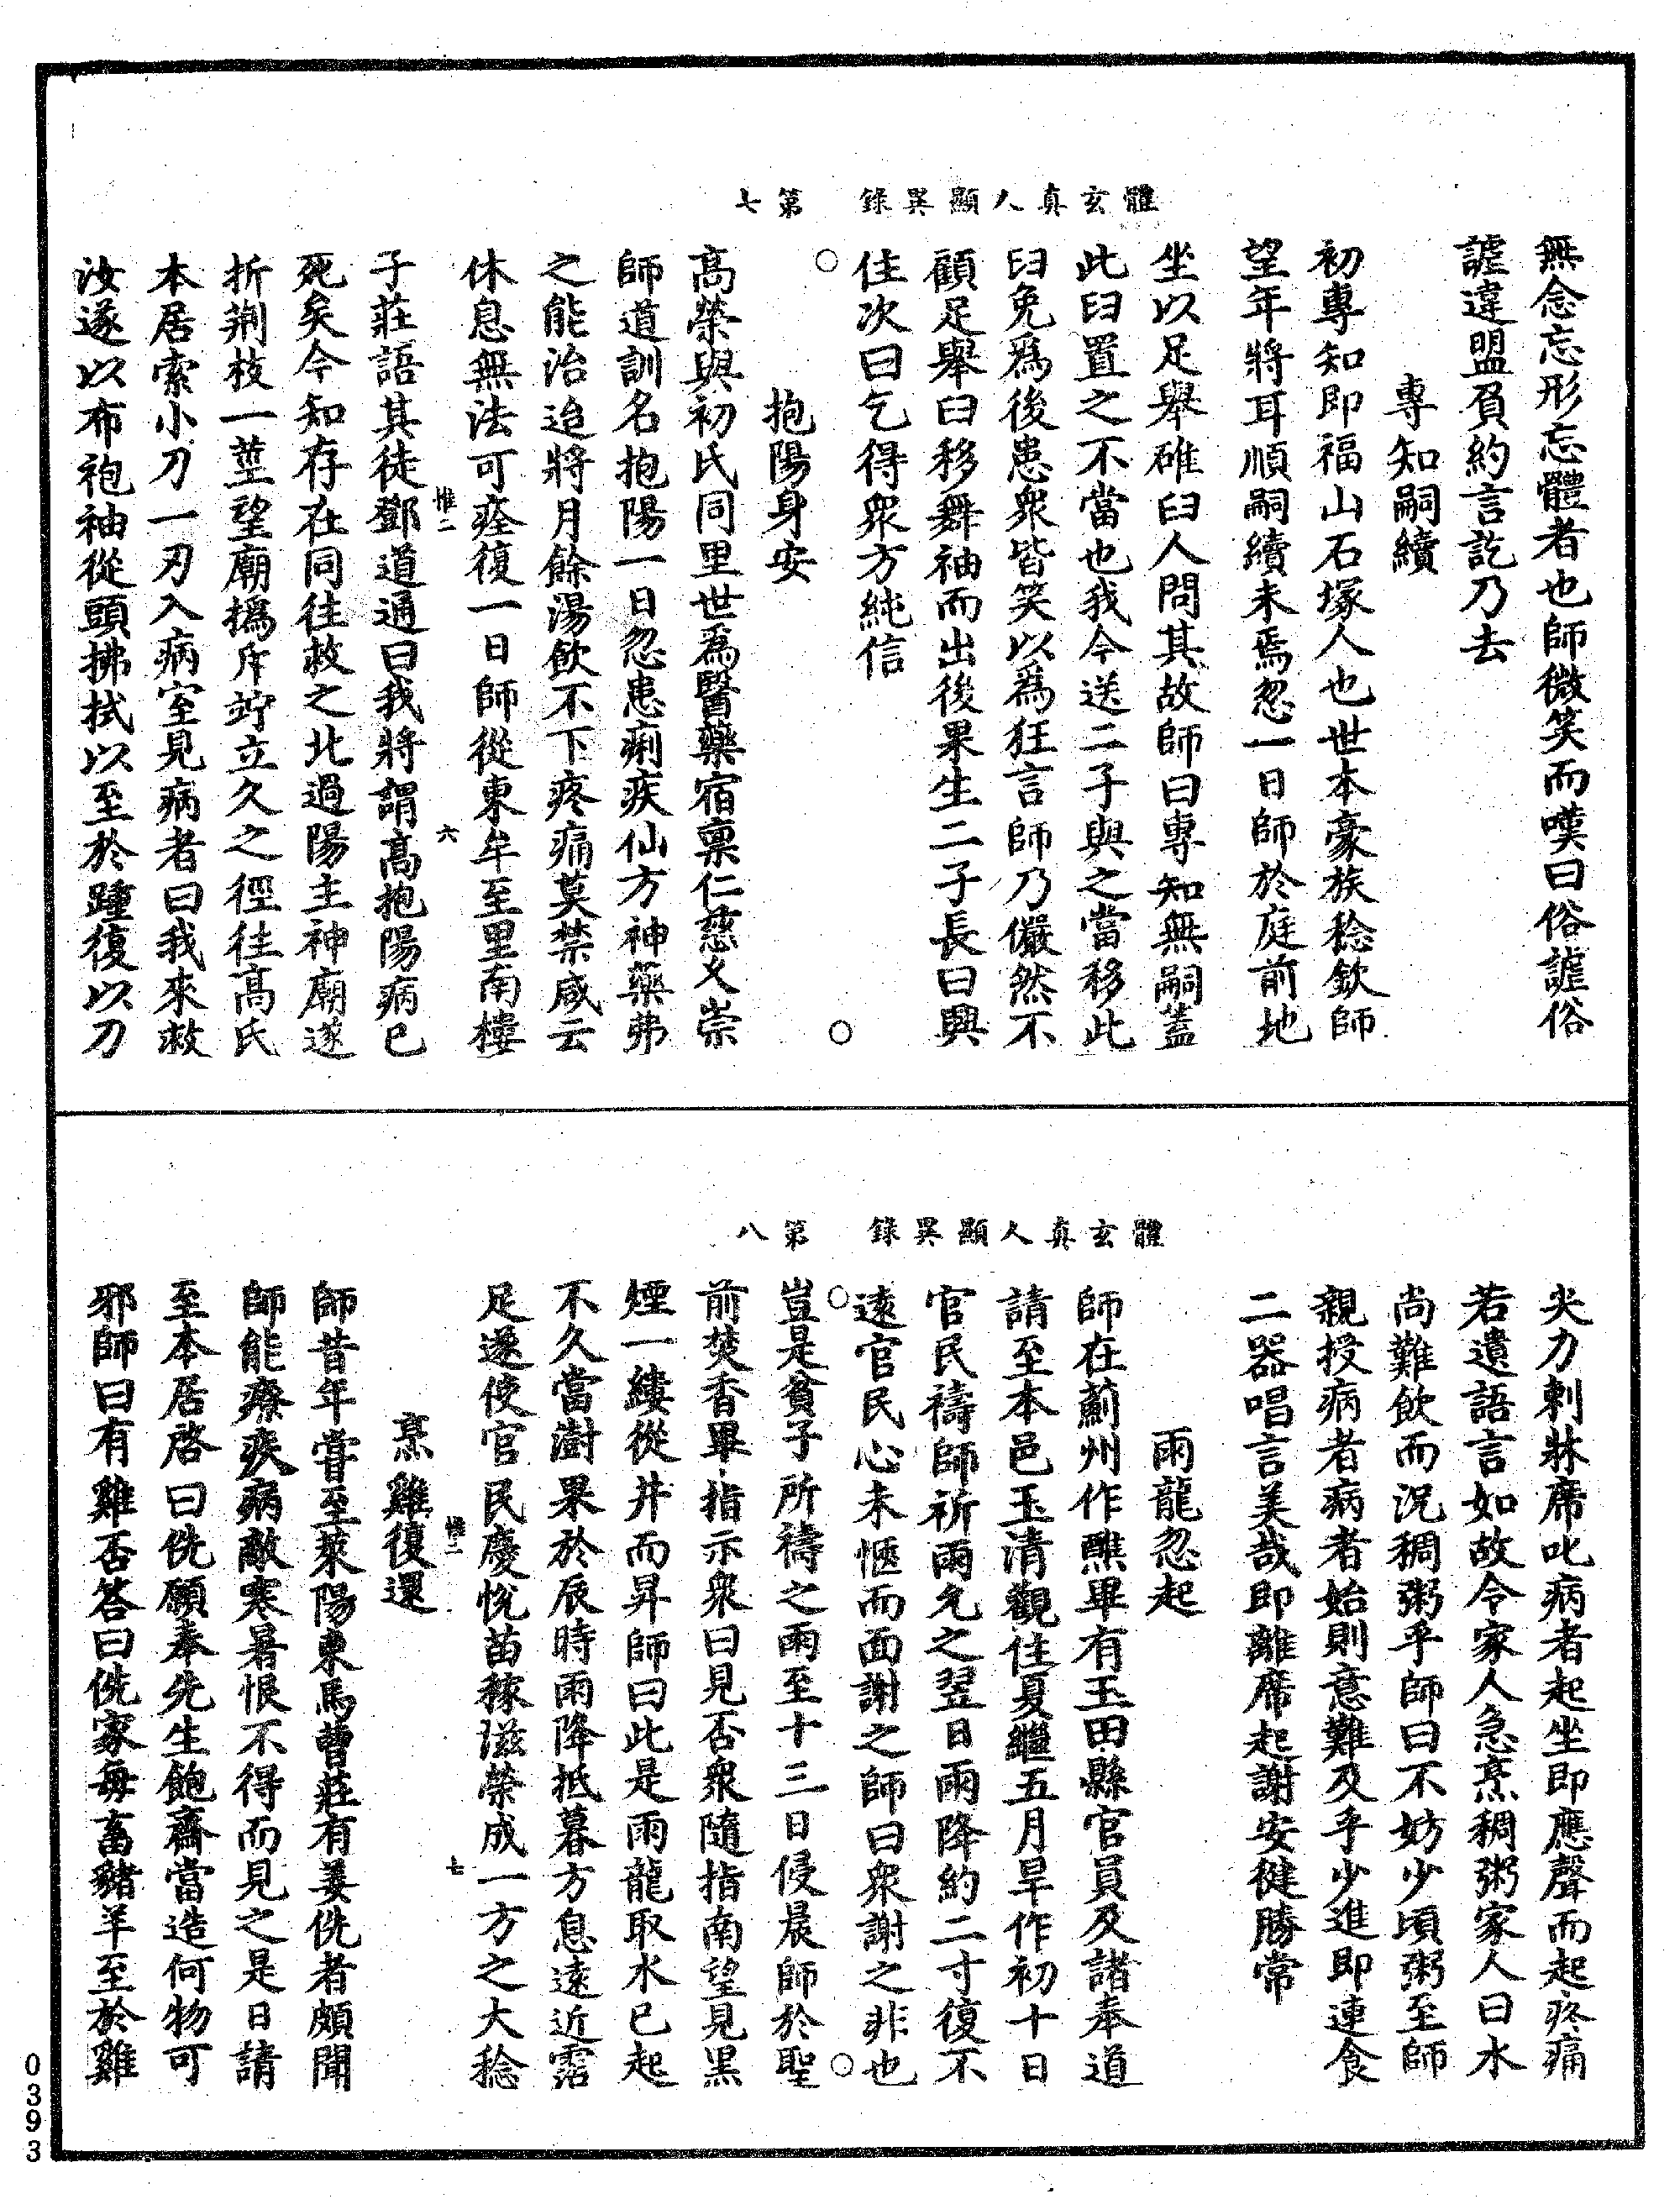 體玄真人顯異錄　第七
無念忘形忘體者也師微笑而嘆曰俗謔俗
謔違盟負約言訖乃去
專知嗣續
初專知即福山石塚人也世本豪族稔欽師
望年將耳順嗣續未焉忽一日師於庭前地
坐以足舉碓臼人問其故師曰專知無嗣蓋
此臼置之不當也我今送二子與之當移此
臼免爲後患衆皆笑以爲狂言師乃儼然不
顧足舉臼移舞袖而出後果生二子長曰興
住次曰乞得衆方純信
抱陽身安
高榮與初氏同里世爲醫藥宿稟仁慈乂崇
師道訓名抱陽一日忽患痢疾仙方神藥弗
之能治迨將月餘湯飲不下疼痛莫禁咸云
休息無法可痊復一日師從東牟至里南樓
惟二　六
子莊語其徒鄧道通曰我將謂高抱陽病已
死矣今知存在同往救之北過陽主神廟遂
折荆枝一莖望廟撝斥竚立久之徑往高氏
本居索小刀一刃入病室見病者曰我來救
汝遂以布袍袖從頭拂拭以至於踵復以刀
體玄真人顯異錄　第八
尖力刺牀席叱病者起坐即應聲而起疼痛
若遺語言如故令家人急烹稠粥家人曰水
尚難飲而況稠粥乎師曰不妨少頃粥至師
親授病者病者始則意難及乎少進即連食
二器唱言美哉即離席起謝安健勝常
雨龍忽起
師在薊州作醮畢有玉田縣官員及諸奉道
請至本邑玉清觀住夏繼五月旱作初十日
官民禱師祈雨允之翌日雨降約二寸復不
遠官民心未愜而面謝之師曰衆謝之非也
豈是貧子所禱之雨至十三日侵晨師於聖
前焚香畢指示衆曰見否衆隨指南望見黑
煙一縷從井而昇師曰此是雨龍取水已起
不久當澍果於辰時雨降抵暮方息遠近霑
足遂使官民慶悅苗稼滋榮成一方之大稔
惟二　七
烹雞復還
師昔年嘗至萊陽東馬曹莊有姜侁者頗聞
師能療疾病敵寒暑恨不得而見之是日請
至本居啓曰侁願奉先生飽齋當造何物可
邪師曰有雞否答曰侁家每畜豬羊至於雞
0393